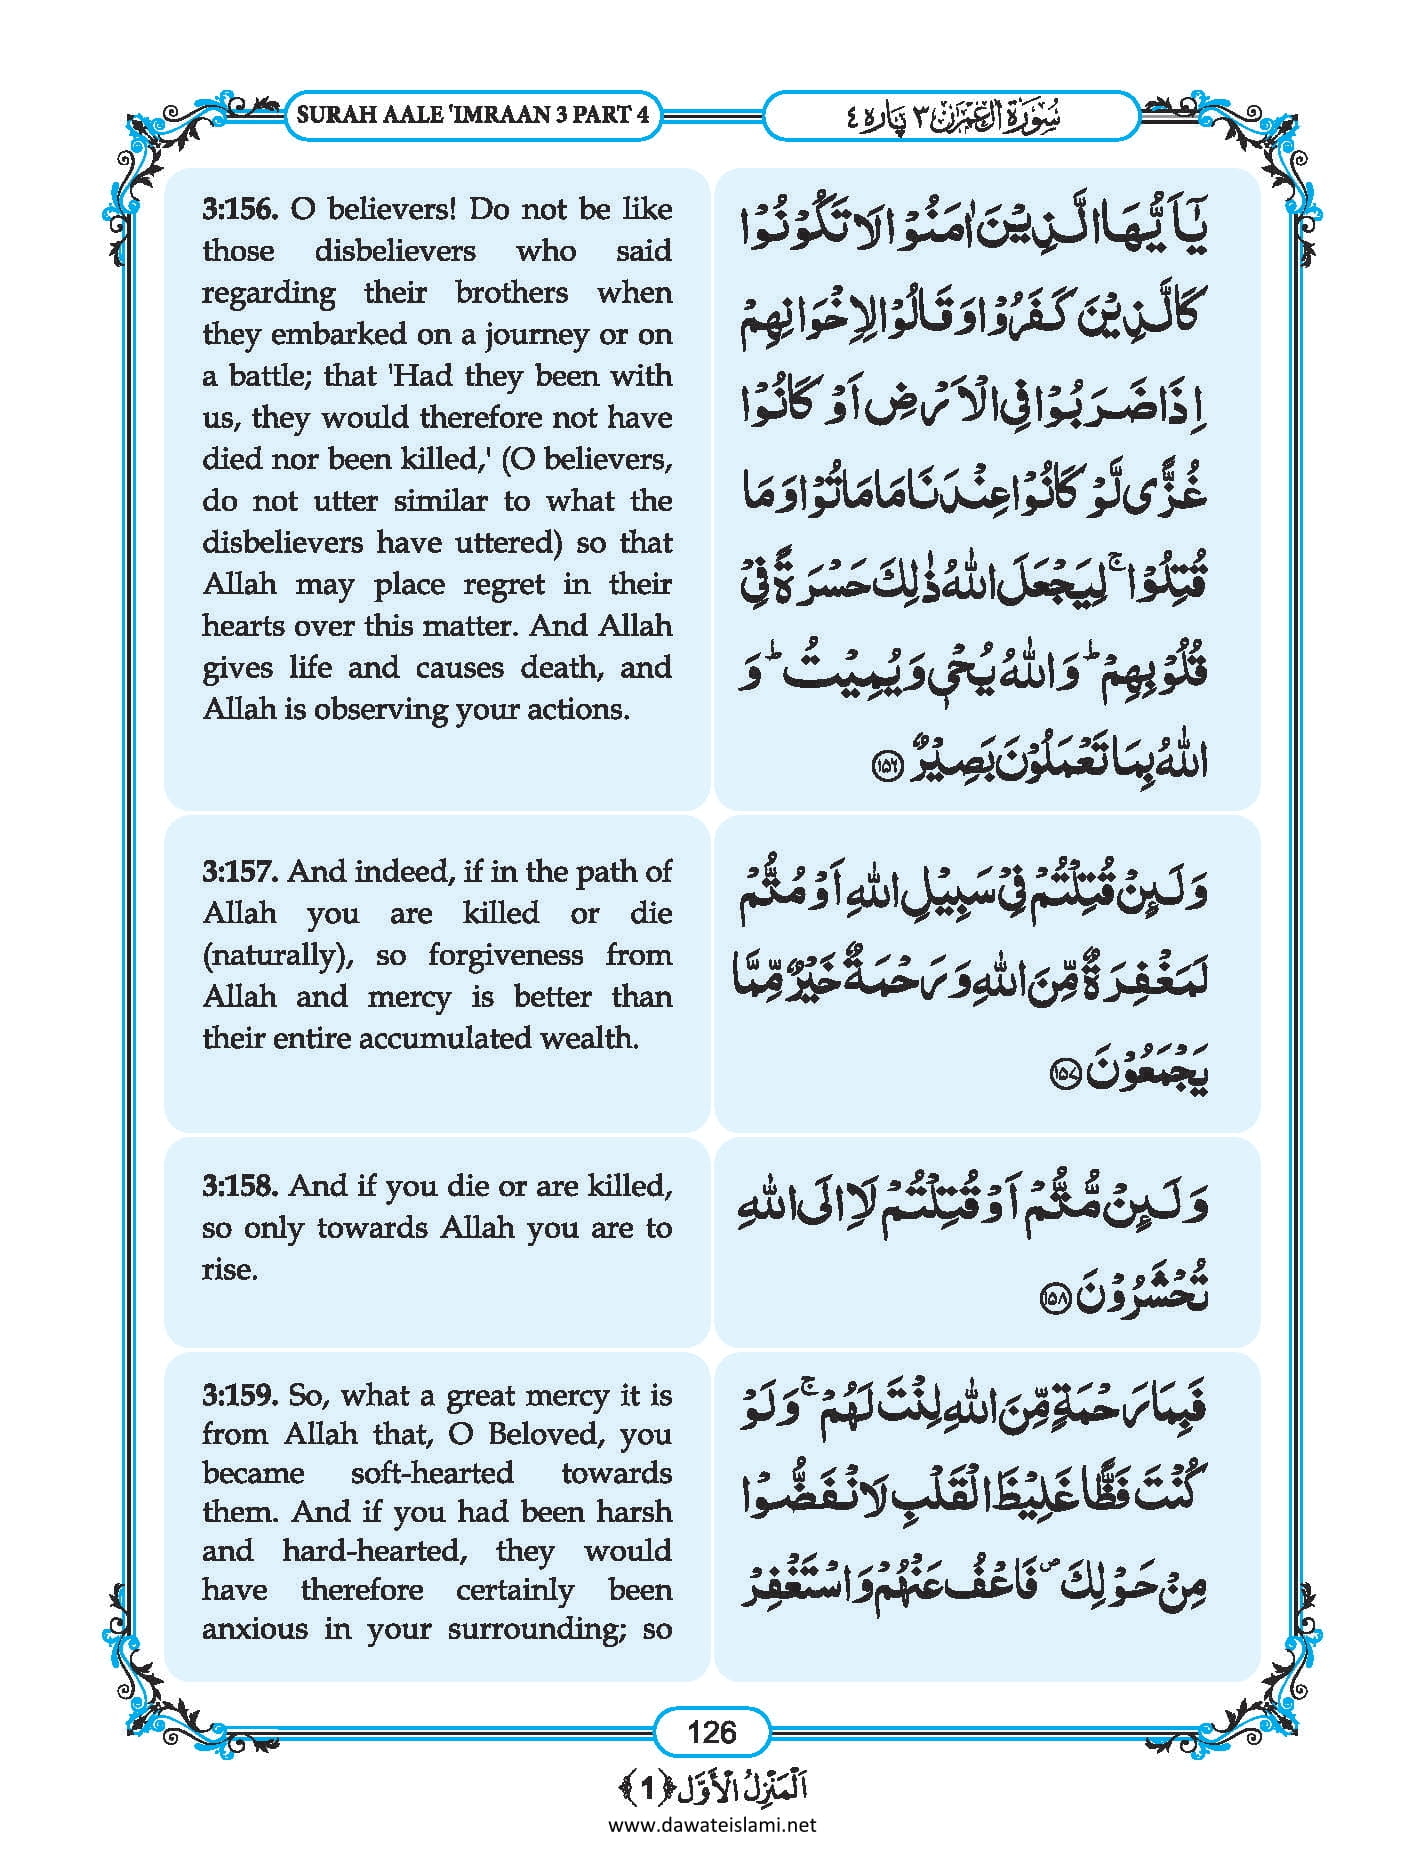 SURAH AALE 'IMRAAN 3 PART 4
سُوۡرَةُ اٰلِ عِمۡرٰنَ ٣ پَارہ ٤
3:156. O believers! Do not be like
those disbelievers who said
regarding their brothers when
they embarked on a journey or on
a battle; that 'Had they been with
us, they would therefore not have
died nor been killed,' (O believers,
do not utter similar to what the
disbelievers have uttered) so that
Allah may place regret in their
hearts over this matter. And Allah
gives life and causes death, and
Allah is observing your actions.
يٰۤاَيُّهَا الَّذِيْنَ اٰمَنُوْا لَا تَكُوْنُوْا
كَالَّذِيْنَ كَفَرُوْا وَقَالُوْا لِاِخْوَانِهِمْ
اِذَا ضَرَبُوْا فِي الْاَرْضِ اَوْ كَانُوْا
غُزًّى لَّوْ كَانُوْا عِنْدَنَا مَا مَاتُوْا وَمَا
قُتِلُوْا ۚ لِيَجْعَلَ اللّٰهُ ذٰلِكَ حَسْرَةً فِيْ
قُلُوْبِهِمْ ؕ وَاللّٰهُ يُحْيٖ وَيُمِيْتُ ؕ وَ
اللّٰهُ بِمَا تَعْمَلُوْنَ بَصِيْرٌ ﴿۱۵۶﴾
3:157. And indeed, if in the path of
Allah you are killed or die
(naturally), so forgiveness from
Allah and mercy is better than
their entire accumulated wealth.
وَلَىِٕنْ قُتِلْتُمْ فِيْ سَبِيْلِ اللّٰهِ اَوْ مُتُّمْ
لَمَغْفِرَةٌ مِّنَ اللّٰهِ وَرَحْمَةٌ خَيْرٌ مِّمَّا
يَجْمَعُوْنَ ﴿۱۵۷﴾
3:158. And if you die or are killed,
so only towards Allah you are to
rise.
وَلَىِٕنْ مُّتُّمْ اَوْ قُتِلْتُمْ لَاۡاِلَى اللّٰهِ
تُحْشَرُوْنَ ﴿۱۵۸﴾
3:159. So, what a great mercy it is
from Allah that, O Beloved, you
became soft-hearted towards
them. And if you had been harsh
and hard-hearted, they would
have therefore certainly been
anxious in your surrounding; so
فَبِمَا رَحْمَةٍ مِّنَ اللّٰهِ لِنْتَ لَهُمْ ۚ وَلَوْ
كُنْتَ فَظًّا غَلِيْظَ الْقَلْبِ لَانْفَضُّوْا
مِنْ حَوْلِكَ ۪ فَاعْفُ عَنْهُمْ وَاسْتَغْفِرْ
126
اَلْمَنْزِلُ الْاَوَّل ﴿1﴾
www.dawateislami.net